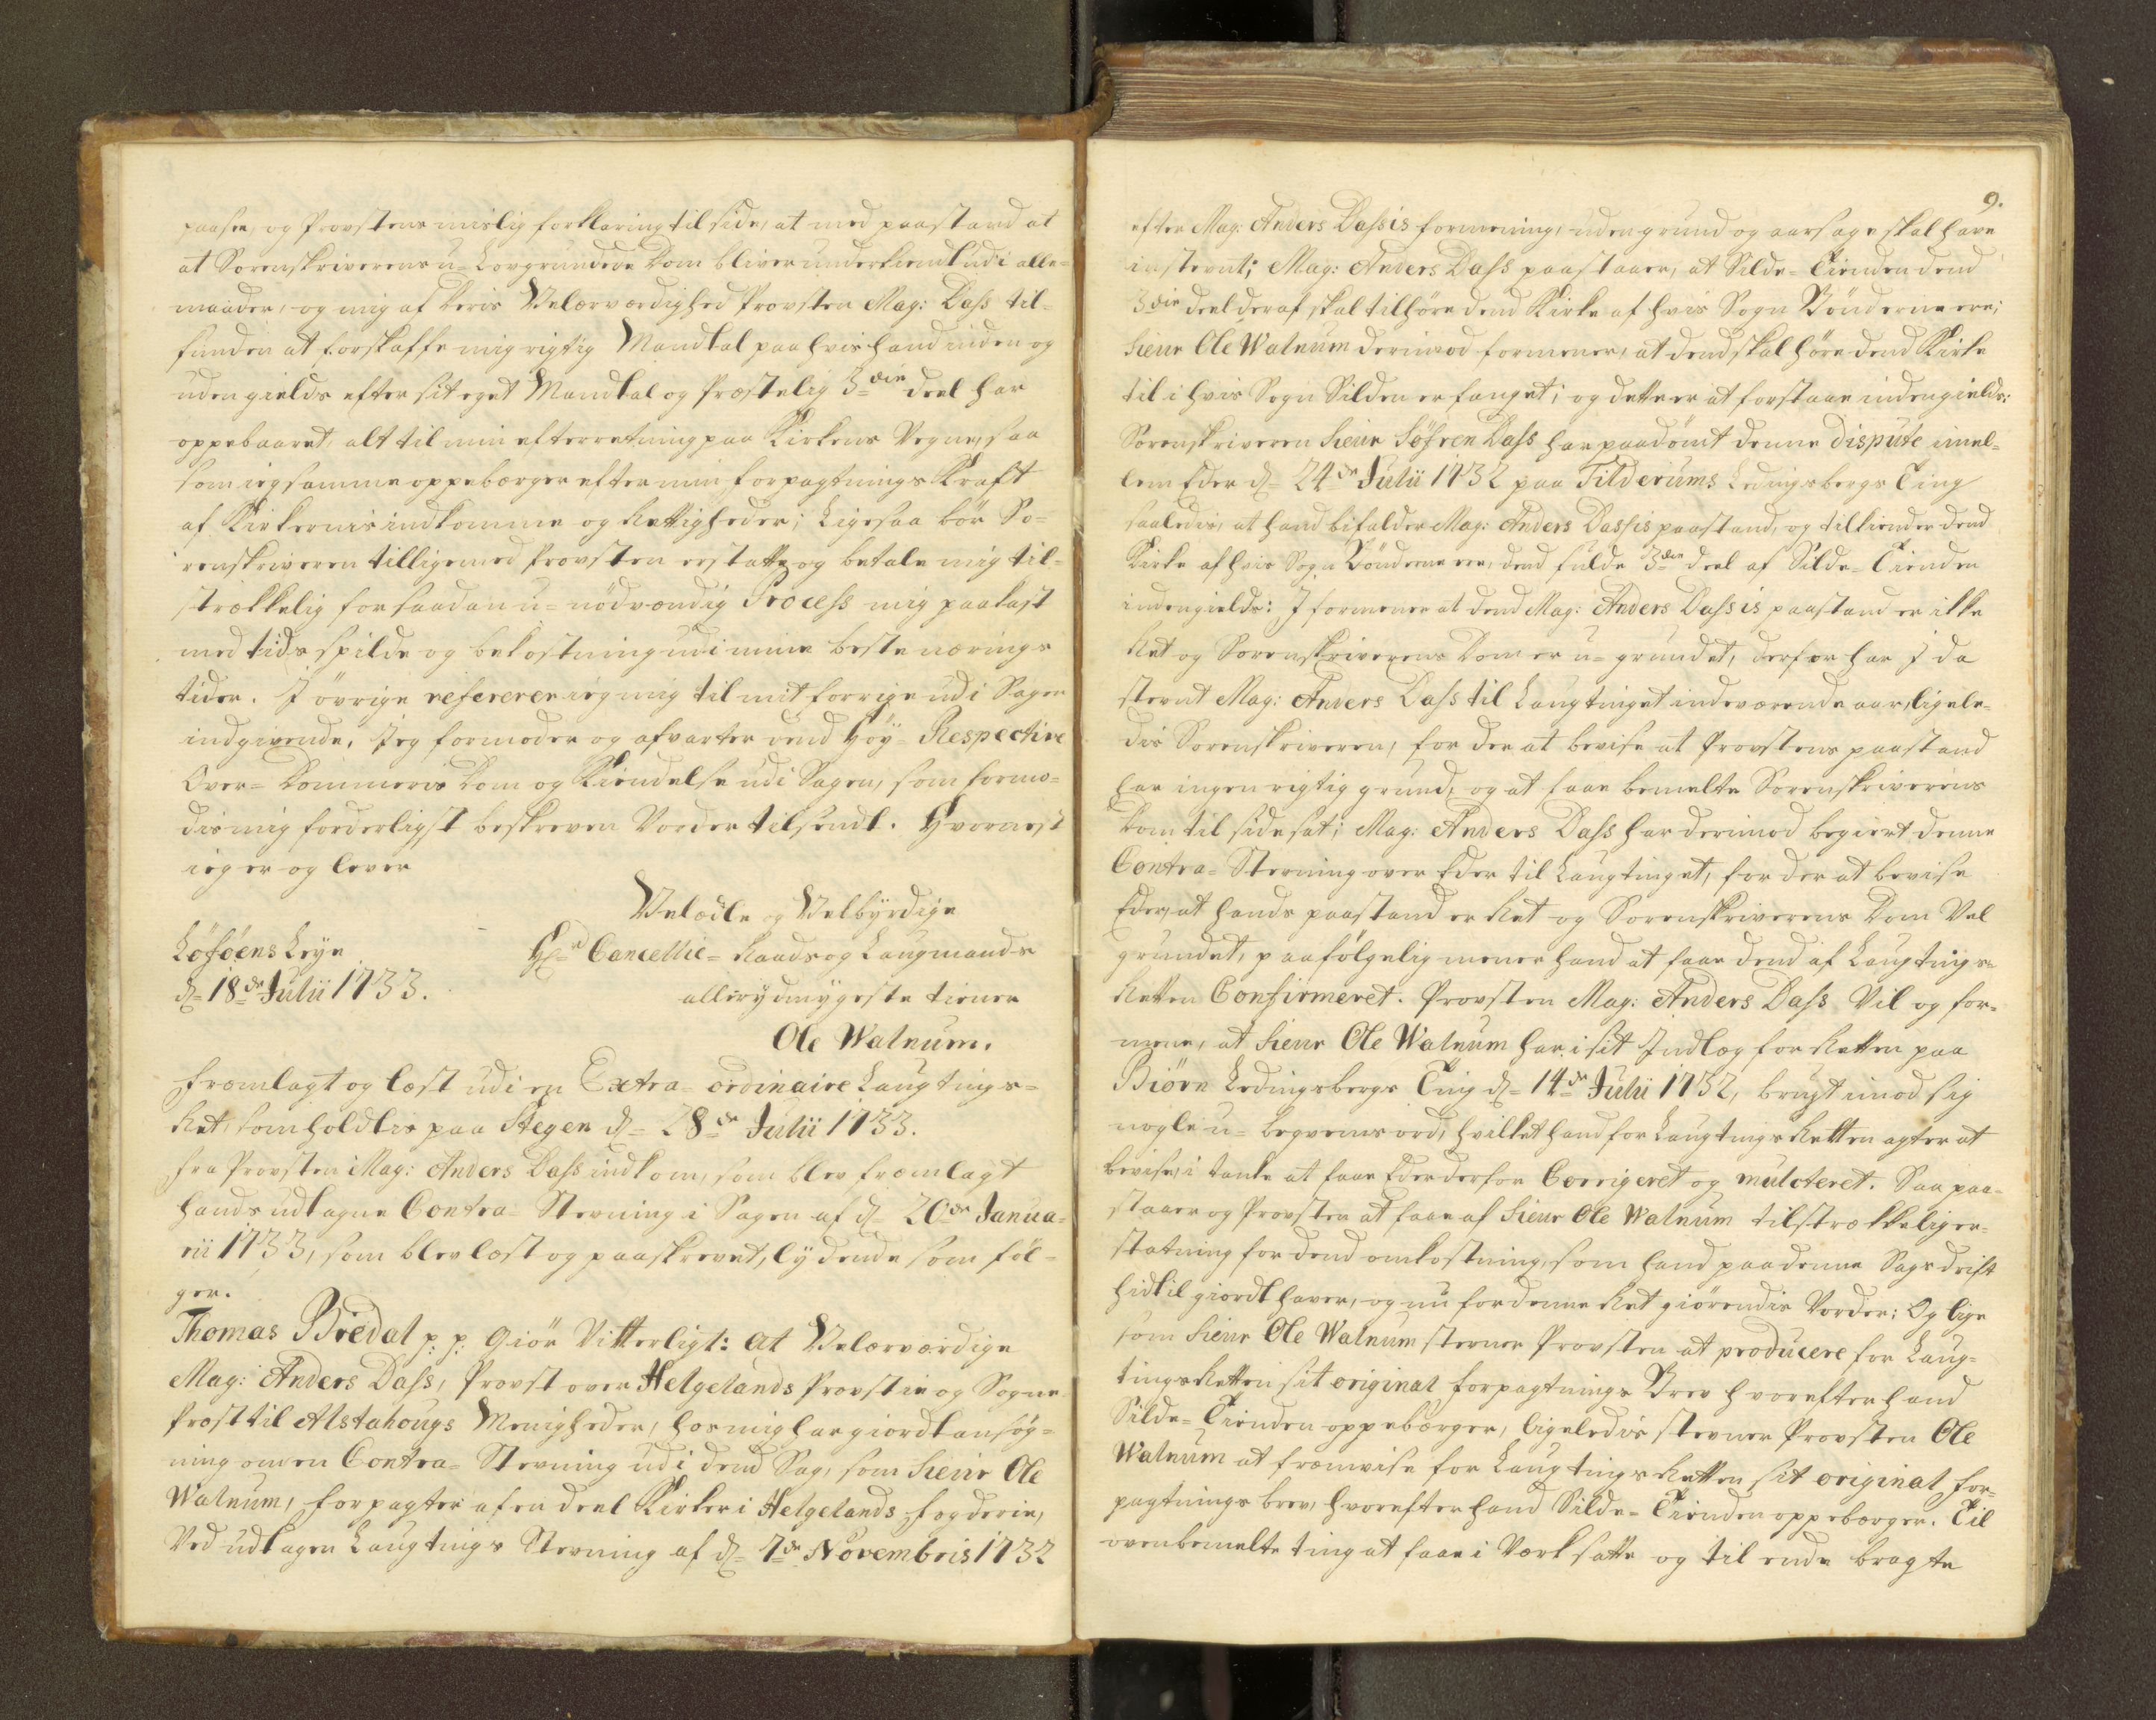 paasee, og Provstens mislig forklaring til side, at med paastand at
at Sorenskriverens u-Lovgrundede Dom bliver underkiendt udi alle
maader, og mig af Deris Velærværdighed Provsten Mag: Dass til-
funden at forskaffe mig rigtig Mandtal paa hvis hand inden og
uden gields efter sit eget Mandtal og Præstelig 3die deel har
oppebaaret, alt til min efterretning paa Kirkens Vegne, saa
som ieg samme oppebærger efter min forpagtnings Kraft
af Kirkernis indkomme og Rettigheder; Ligesaa bör So-
renskriveren tilligemed Provsten erstatte og betale mig til-
strækkelig for saadan u-nödvændig Process mig paakast
med tids spilde og bekostning udi mine beste nærings
tider. I övrige refererer ieg mig til mit forrige udi Sagen
indgivende. Jeg formoder og afvarter dend Höy-Respective
Over-Dommeris Dom og Kiendelse udi Sagen, som formo-
dis mig forderligst beskreven Vorder tilsendt. Hvornest
ieg er og lever
Velædle og Velbyrdige
Hr Cancellie-Raads og Laugmands
Lofoens Leye
d= 18de Julii 1733.
allerydmygeste tiener
Ole Walnum.
Fremlagt og læst udi en Extra-ordinaire Laugtings-
Ret, som holdtis paa Stegen d= 28de Julii 1733.
Fra Provsten Mag: Anders Dass indkom, som blev fremlagt
hands udtagne Contra-Stevning i Sagen af d= 20de Janua-
rii 1733, som blev læst og paaskrevet, lydende som föl-
ger.
Thomas Bredal p: p: Giör Vitterligt: at Velærværdige
Mag: Anders Dass, Provst over Helgelands Provstie og Sogne
Præst til Alstahougs Menigheder, hos mig har giordt ansög-
ning om en Contra-Stevning udi dend Sag, som Sieur Ole
Walnum, Forpagter af en deel Kirker i Helgelands fogderie,
Ved udtagen Laugtings Stevning af d= 7de Novembris 1732
9.
efter Mag: Anders Dassis formening, uden grund og aarsage skal have
instevnt; Mag: Anders Dass paastaaer, at Silde-Tienden dend
3die deel deraf skal tilhöre dend Kirke af hvis Sogn Bönderne ere;
Sieur Ole Walnum derimod formener, at dend skal höre dend Kirke
til i hvis Sogn Silden er fanget; og dette er at forstaae indengields:
Sorenskriveren Sieur Söfren Dass har paadömt denne dispute imel-
lem Eder d= 24de Julii 1732 paa Tilderums Ledingsbergs Ting
saaledis, at hand bifalder Mag: Anders Dassis paastand, og tilkiender dend
Kirke af hvis Sogn Bönderne ere, dend fulde 3die deel af Silde-Tienden
indengields: I formener at dend Mag: Anders Dassis paastand er ikke
Ret og Sorenskriverens Dom er u-grundet, derfor har I da
stevnt Mag: Anders Dass til Laugtinget indeværende aar, ligele-
dis Sorenskriveren, for der at bevise at Provstens paastand
har ingen rigtig grund, og at faae bemelte Sorenskriverens
Dom til side sat; Mag: Anders Dass har derimod begiert denne
Contra-Stevning over Eder til Laugtinget, for der at bevise
Eder, at hands paastand er Ret og Sorenskriverens Dom Vel
grundet, paafölgelig mener hand at faae dend af Laugtings-
Retten Confirmeret. Provsten Mag: Anders Dass Vil og for-
mene, at Sieur Ole Walnum har i sit Indlæg for Retten paa
Biörn Ledingsbergs Ting d= 14de Julii 1732, brugt imod sig
nogle u-beqvems ord, hvilket hand for Laugtings Retten agter at
bevise, i tanke at faae Eder derfor Corrigeret og mulcteret. Saa paa-
staaer og Provsten at faae af Sieur Ole Walnum tilstrækkelig er-
statning for dend omkostning, som hand paa denne Sags drift
hidtil giordt haver, og nu for denne Ret giörendis Vorder: Og lige
som Sieur Ole Walnum stevner Provsten at producere for Laug-
tings Retten sit original forpagtnings Brev hvorefter hand
Silde-Tienden oppebærger, ligeledis stevner Provsten Ole
Walnum at fremvise for Laugtings Retten sit original for-
pagtnings brev, hvorefter hand Silde-Tienden oppebærger. Til
ovenbemelte ting at faae i Værk satte og til ende bragte